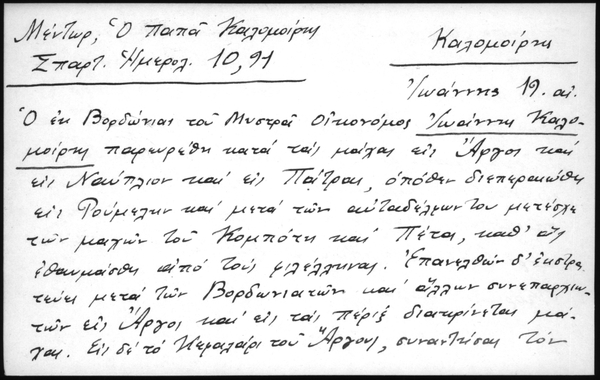 Μέντωρ, Ὁ Παπᾶ Καλομοίρης
Σπαρτ. Ἡμερολ. 10, 91
Καλομοίρης
Ἰωάννης 19. αἰ.
Ὁ ἐκ Βορδώνιας τοῦ Μυστρᾶ Οἰκονόμος Ἰωάννης Καλο-
μοίρης παρευρέθη κατά τάς μάχας εἰς Ἄργος καί
εἰς Ναύπλιον καί εἰς Πάτρας, ὁπόθεν διεπεραιώθη
εἰς Ρούμελην καί μετά τῶν αὐταδέλφων του μετέσχε
τῶν μαχῶν τοῦ Κομπότη καί Πέτα, καθ' ἅς
ἐθαυμάσθη ἀπό τούς φιλέλληνας. Ἐπανελθών δ' ἐκστρα-
τεύει μετά τῶν Βορδωνιατῶν καί ἄλλων συνεπαρχιω-
τῶν εἰς Ἄργος καί εἰς τάς πέριξ διακρίνεται μά-
χας. Εἰς δέ τό Κεφαλάρι τοῦ Ἄργους, συναντήσας τόν